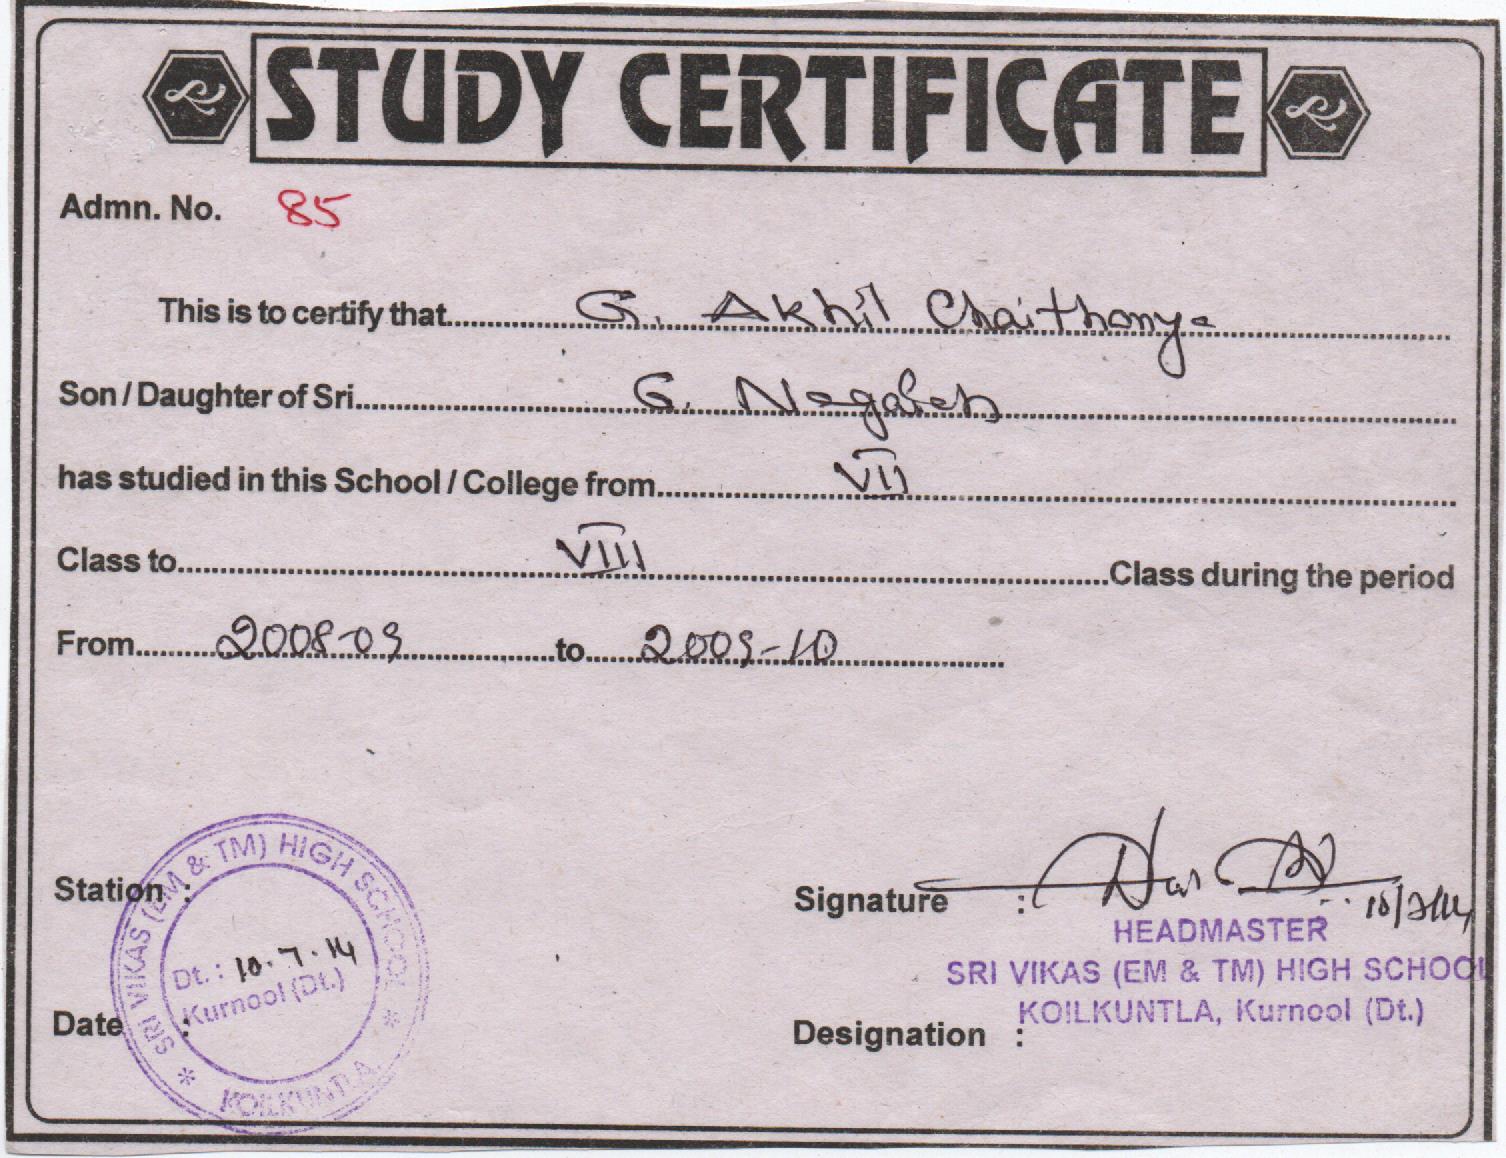 STUDY CERTIFICATE
Admn. No. 85
This is to certify that G. Akhil Chaithanya
Son / Daughter of Sri G. Nagaiah
has studied in this School / College from VII
Class to VIII Class during the period
From 2008-09 to 2009-10
Station :
Date :
SRI VIKAS (EM & TM) HIGH SCHOOL
* KOILKUNTLA *
Dt. : 10.7.14
Kurnool (Dt.)
Signature : 10/7/14
HEADMASTER
SRI VIKAS (EM & TM) HIGH SCHOOL
KOILKUNTLA, Kurnool (Dt.)
Designation :